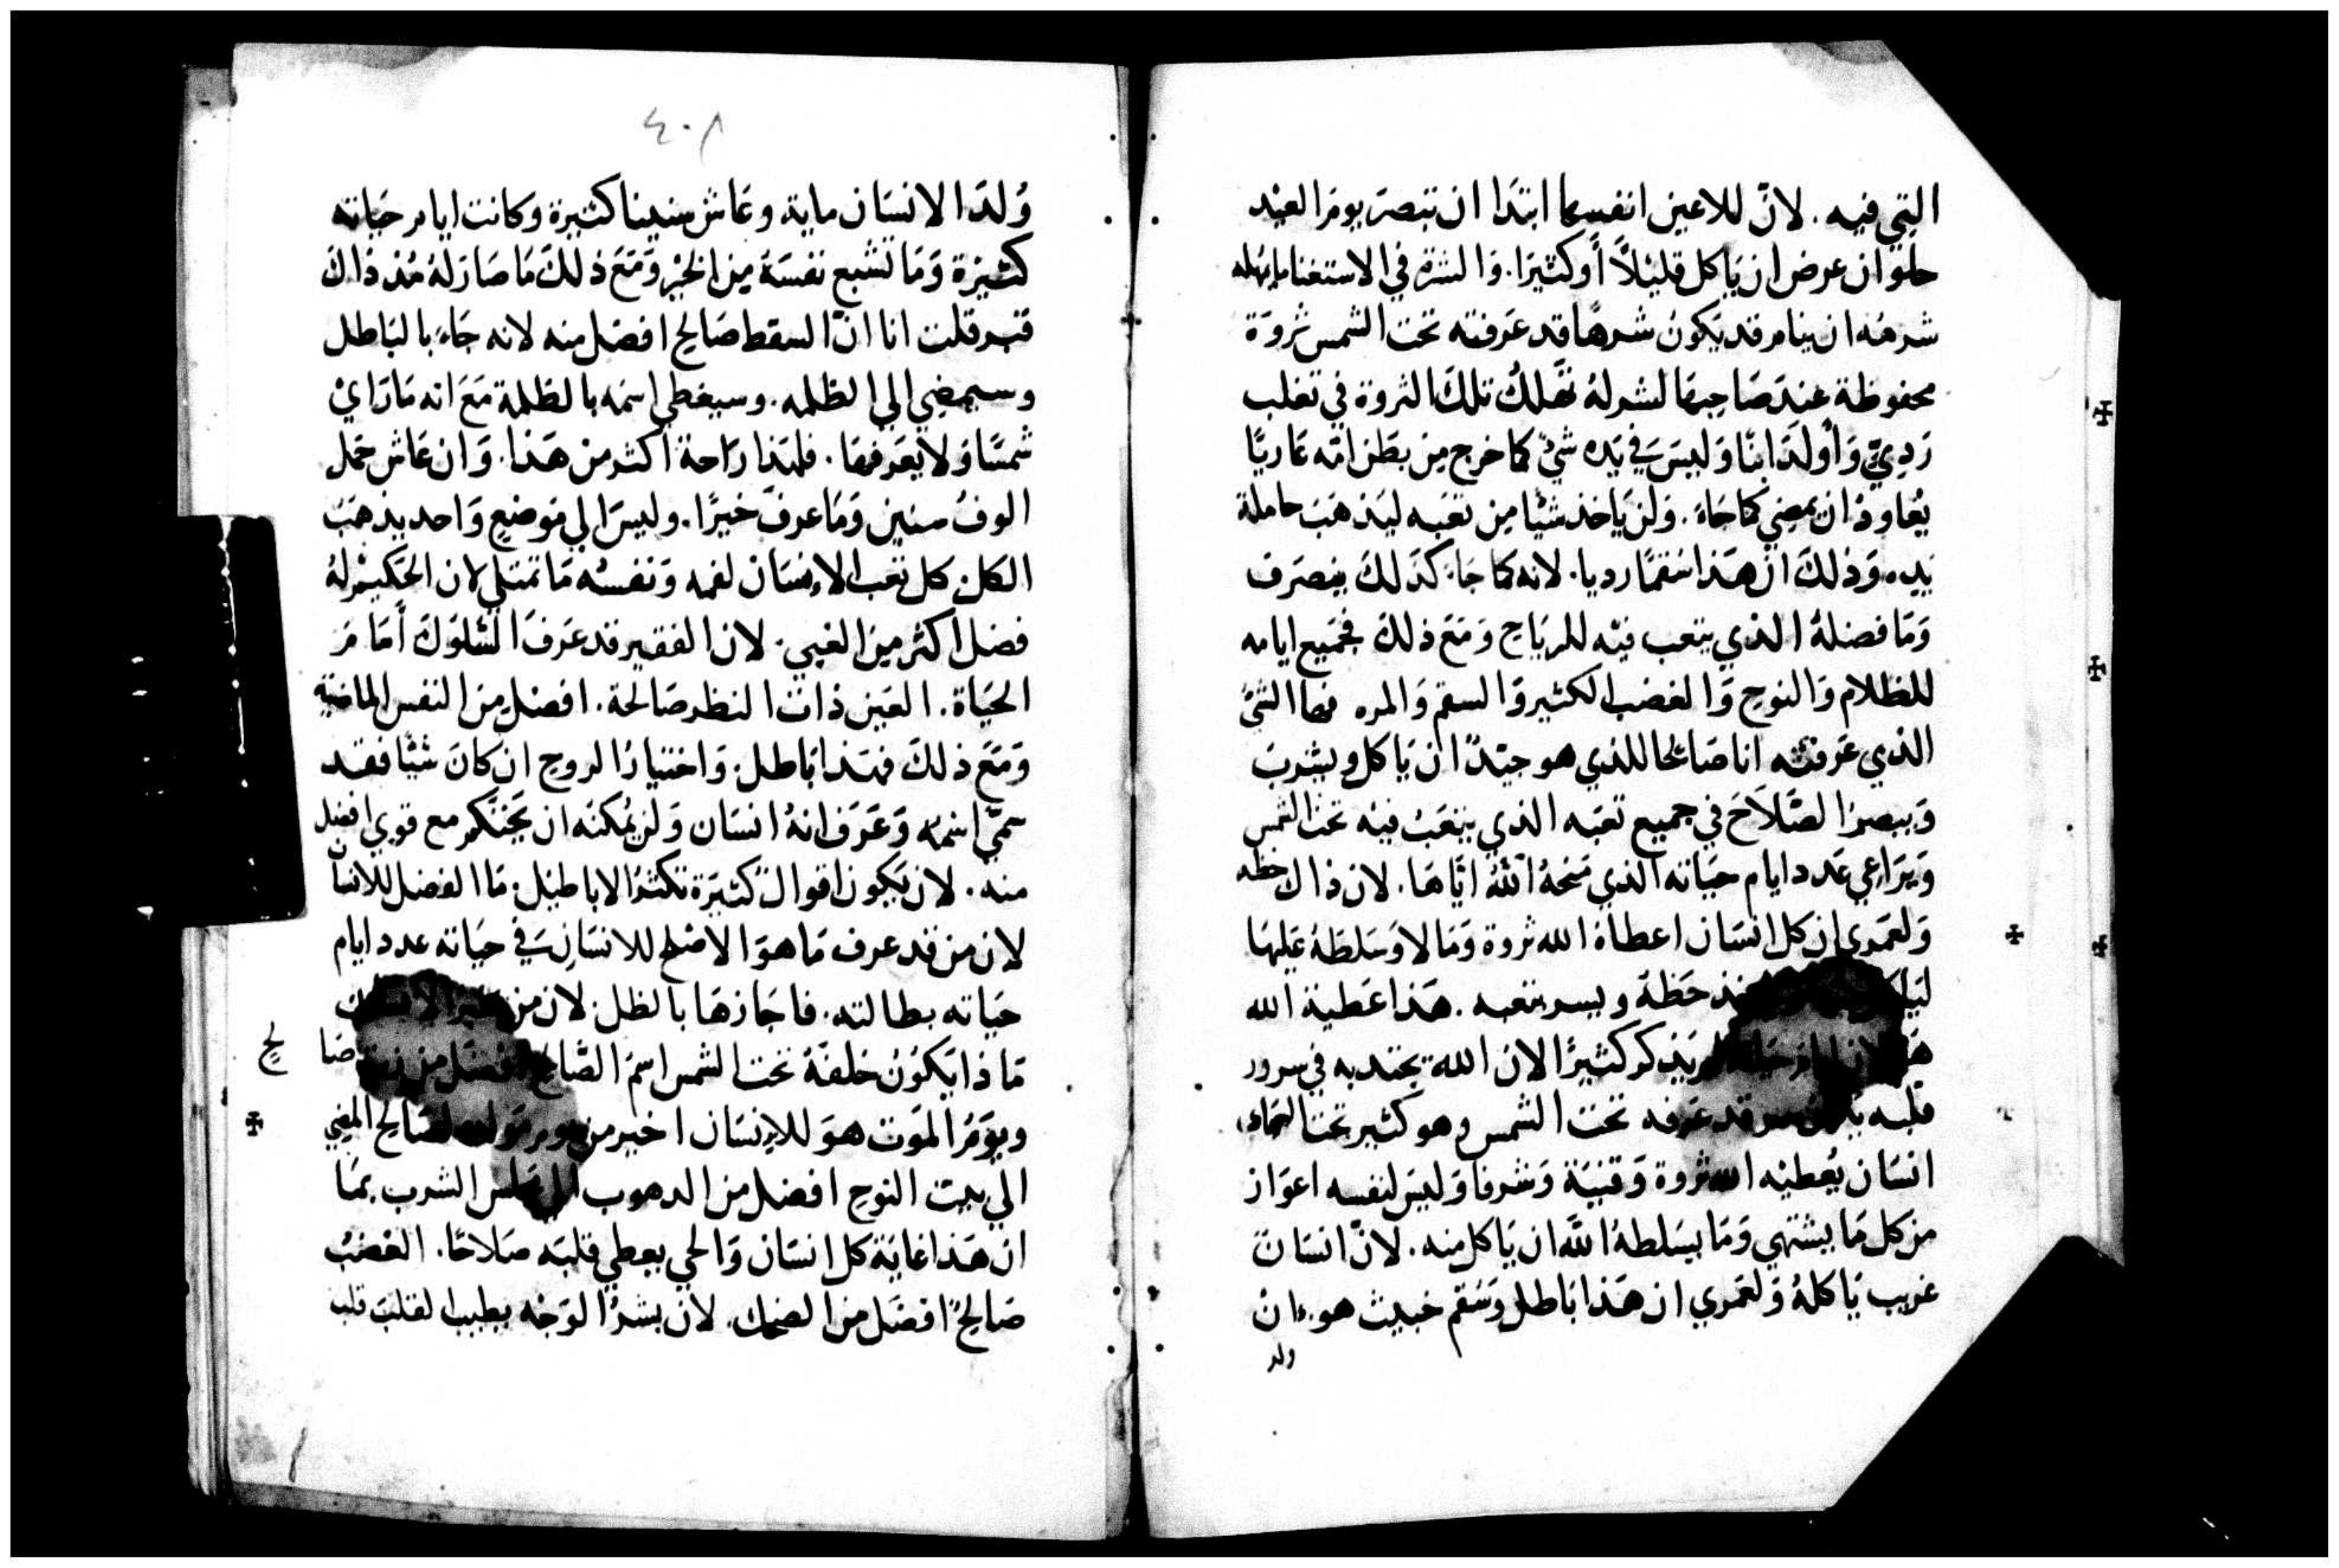 التي فيه. لان للاعين انفسها ابتدا ان تبصر يوم العيد
حلو ان عرض ان ياكل قليلاً أو كثيرا. والشره في الاستغنا
شرهُه ان ينام قد يكونُ شرهًا قد عرفته تحت الشمس ثروة
محفوظة عند صَاحبهَا لشر لهُ تهلكُ تلك الثروة في تغلب
رَديّ وَأولدَ ابنًا وَليسَ في يَده شيٌ كما خرج من بطن امّه عاريًا
يُعاود ان يمضي كما جَاءَ. وَلن ياخذ شيًا من تعبه ليذهَبَ حاملهُ
بيده وَذلكَ ان هَذا سُقمًا رديا. لانه كما جَا كذلكَ ينصَرف
وَمَا فضلهُ الذي يتعب فيْه للريَاح وَمَعَ ذلكَ فجميع ايامه
للظلام وَالنوح وَالغضب الكثير وَالسقم وَالمره فها الشيُ
الذي عَرفته انا صَالحا للذي هو جيّدًا ان يَاكل ويشربَ
وَيبصرَ الصَّلاَحَ في جميع تعبَه الذي يتعَبُ فيْه تحتَ الشمس
وَيرَاعي عَدد ايام حيَاته الذي منحهُ اللهُ ايّاهَا. لان ذاك حظه
وَلعَمري ان كل انسَان اعطاهُ الله ثروة وَمَالا وَسَلطَهُ عَليهَا
حَظهَ ويسر بتعبه. هَذا عَطية الله
يَذكر كثيرًا لان الله يجتدبه في سرور
قلبه قد عَرفه تحت الشمس وهو كثير تحت السماء
انسَان يُعطيْه الله ثروة وَقنيَة وَشرفا وَليسَ لنفسه اعوَاز
من كل مَا يشتهي وَمَا يسَلطهُ اللهَ ان يَاكل منه. لانّ انسَان
غريب يَاكلهُ وَلعَمري ان هَذا بَاطل وَسُقم خبيث هو. ان
ولد
٤٠٨
وُلدَ الانسَان ماية وعَاش سنينا كثيرة وَكانت ايام حيَاته
كثيرة وَمَا تشبع نفسَهُ من الخيْر وَمَعَ ذلكَ مَا صَار لهُ مُنذ ذاك
قبر قلت انا انّ السقط صَالح افضل منه لانه جَاءَ بالبَاطل
وسيمضي الي الظلمه. وسيغطي اسمَه بالظلمة مَعَ انه مَا رَاي
شمسًا وَلا يعَرفهَا. فلهَذا رَاحة أكثر منْ هَذا. وَان عَاش حمل
الوفُ سنين وَمَا عرفَ خيرًا. وليسَ الي موَضعٍ وَاحد يذهَبُ
الكل كل تعب الانسَان لفمه وَنفسُه مَا تمتلي لان الحَكيمْ لهُ
فضل أكثر منَ الغبي. لان الفقير قد عَرفَ السّلوَك أمَامَ
الحَيَاة. العَين ذات النظر صَالحة. افضل من النفس الماضيه
وَمَعَ ذلكَ فهَذا بَاطل. وَاختيَارُ الروح ان كانَ شيًّا فقد
سمّي اسمُه وَعَرَف انهُ انسَان وَلن يُمكنَه ان يَحْتَكم مع قوي افضل
منه. لان يَكون اقوالٌ كثيرَة تكثرُ الاباطيْل. مَا الفضل للانسان
لان من قد عرف مَا هوَ الاصْلح للانسَان في حيَاته عدد ايام
حيَاته بطالته. فاجَازهَا بالظل. لان من
مَاذا يَكونُ خلفَهُ تحت الشمس اسمُ الصَّالح افضَل من صَا
لح
ويوَمُ الموَت هوَ للانسَان اخير من يوم المضي
الي بيت النوح افضل من الدهوب الشرب بمَا
ان هَذا غايَة كل انسَان وَالحي يعطي قلبَه صَلاحًا. الغَضبُ
صَالحٌ افضَل من الضحك. لان بشرُ الوَجْه يطيب القلبَ قلب